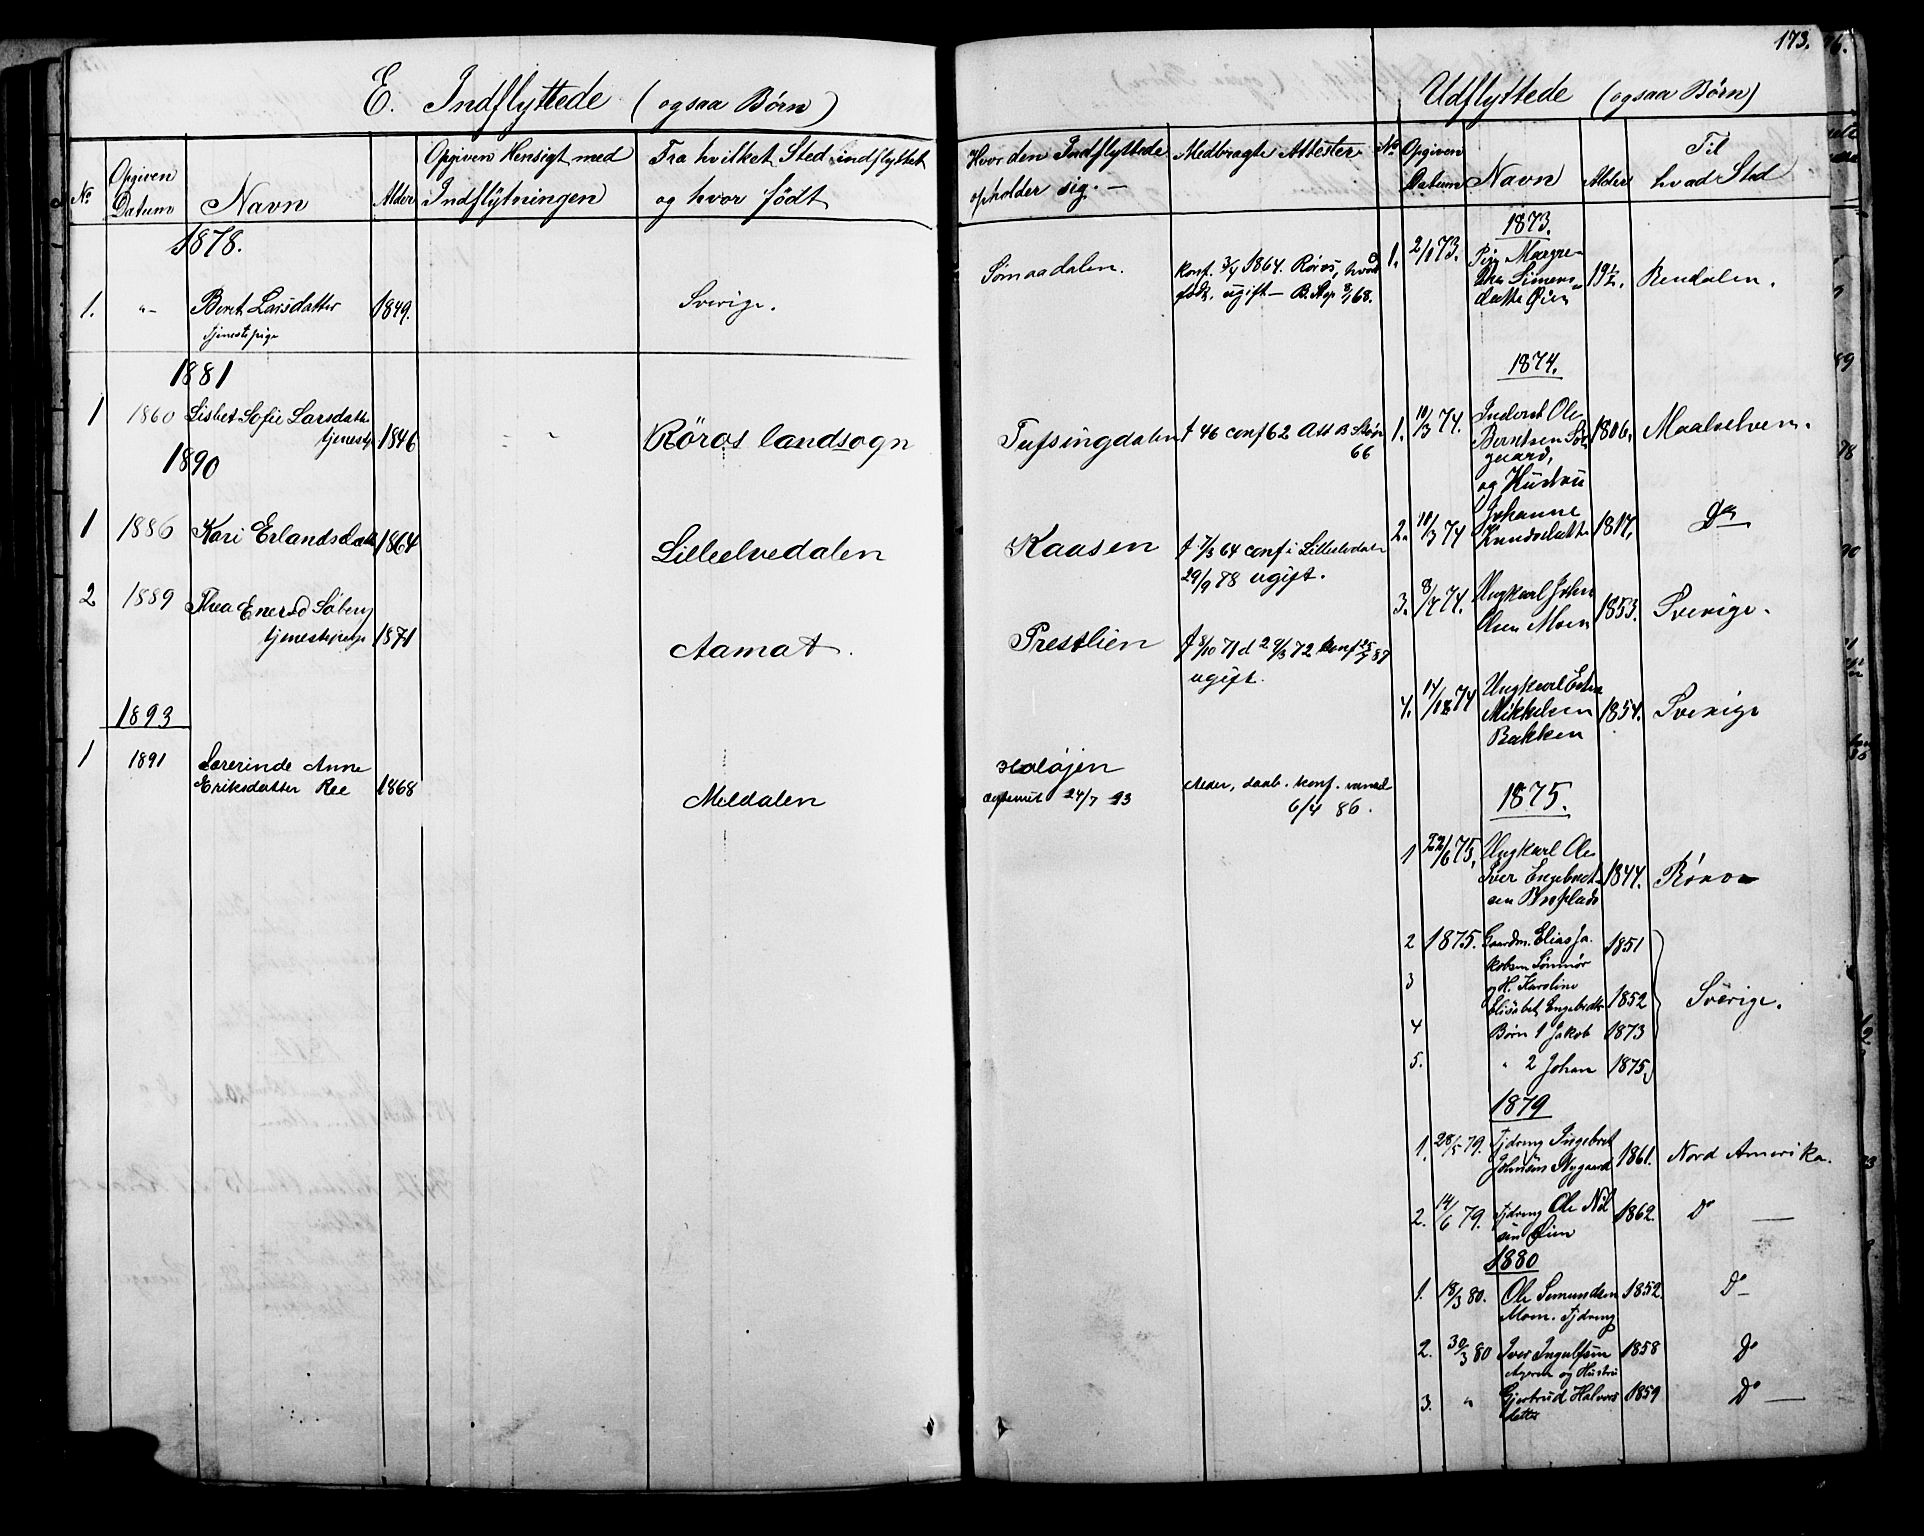 E. Indflyttede (ogsaa Børn)
No
Opgiven Datum
Navn
Alder
Opgiven Hensigt med Indflytningen
Fra hvilket Sted indflyttet og hvor født
1878.
1. " Beret Larsdatter 1849. Sverige.
tjenestepige
1881
1 1860 Lisbet Sofie Larsdatte 1846 Röros landsogn
tjenestp
1890
1 1886 Kari Erlandsdatt 1864 Lilleelvedalen
2 1889 Thea Enersd Söberg
tjenestepige 1871 Aamot.
1893
1 1891 Lærerinde Anne
Eriksdatter Ree 1868 Meldalen
173.
Udflyttede (ogsaa Børn)
Hvor den Indflyttede opholder sig.
Medbragte Attester
No
Opgiven Datum
Navn
Alder
Til hvad Sted
Sømaadalen. Konf. 3/4 1864. Røros, hvor
født, ugift – 
Tufsingdalen f 46 conf 62 Att
66
Kaasen f 7/3 64 conf i Lilleelvdalen
29/9 78 ugift.
Prestlien f 8/10 71 d 2 4/3 72 konf 25/9 87
ugift.
Holøjen
24/7 93
daab. konf.
6/4 86.
1873.
1. 2/1 73. Pige Margre-
the Simens-
datte Øien 19½. Rendalen.
1874.
1. 10/3 74. Inderst Ole
Berntsen
gaard, 1806. Maalselven.
og Hustru
2. 10/3 74 Johanne
Knudsdatte 1817. Do
3. 8/4 74. Ungkarl John
Olsen Moen 1853. Sverige.
4. Ungkarl
Mikkelsen 1854. Sverige
Bakken
1875.
1 22/6 75. Ungkarl Ole
Iver Engebret-
sen 1844. Røros
2 1875. Gaardm. Elias Ja-
kobsen Sömmör 1851
3 og H. Karoline
Elisabet Engebrdtr 1852 Sverige.
4 Børn 1 Jakob 1873
5. " 2 Johan 1875.
1879
1. 28/5 79. Fjdreng Ingebret
Johnsen Nygaard 1861. Nord Amerika.
2. 14/6 79. Fjdreng Ole Nil
sen Øien 1862. Do
1880
1. 18/3 80. Ole Simundsen 1852. Do
Moen. Fjdreng
2. 30/3 80 Iver Ingulfsen 1858 Do
og Hustru
3. " Gjertrud Halvors 1859 Do
datter